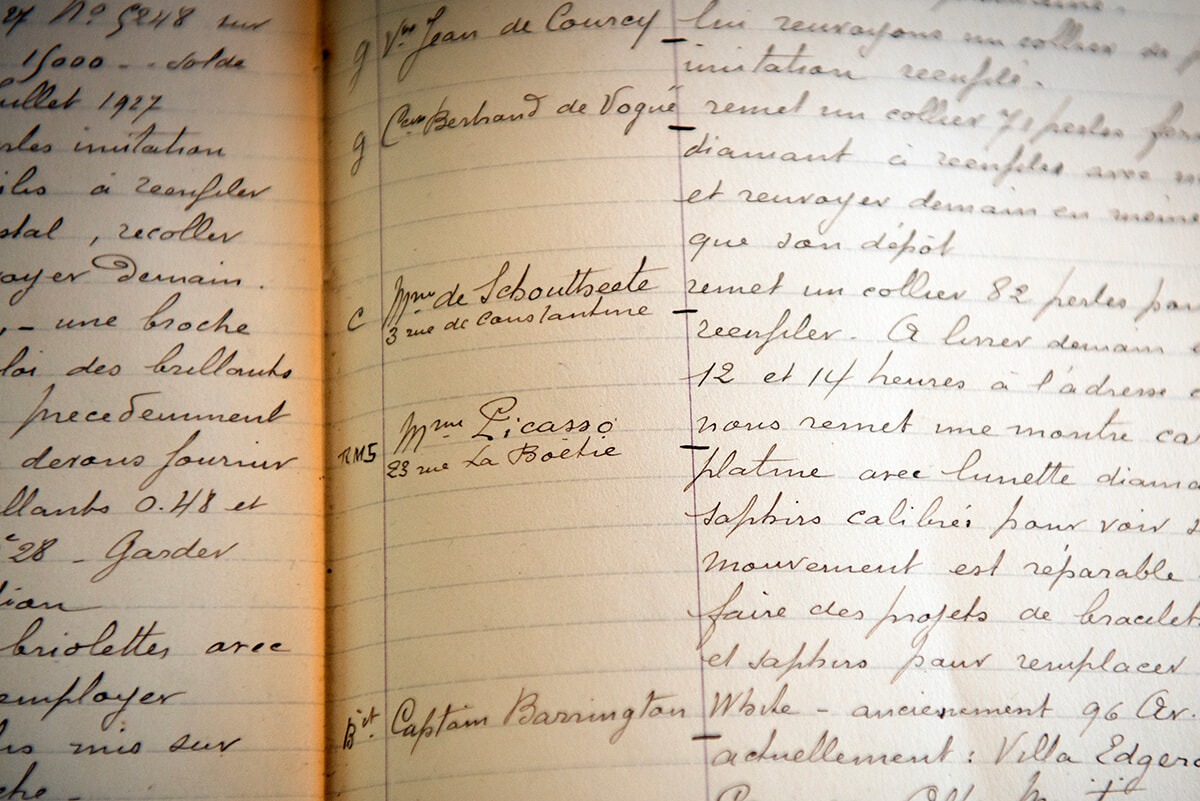 27 Nº 5248 sur
15000 - . solde
uillet 1927
rles imitation
à reenfiler
stal , recoller
oyer Demain .
, - une broche
loi des brillants
precedemment
devons fournir
llants 0.48 et
28 - Garder
tion
briolettes avec
employer
mis sur
che -
g Vsse Jean de Courcy - lui renvoyons un collier de
imitation reenfilé .
g Csse Bertrand de Vogué - remet un collier 71 perles
diamant à reenfiler avec
et renvoyer demain en meme
que son dépôt
c Mme de Schoutheete - remet un collier 82 perles pour
3 rue de Constantine
reenfiler . A livrer demain
12 et 14 heures à l'adresse
RMS Mme Picasso - nous remet une montre
23 rue La Boëtie
platine avec lunette diama
saphirs calibrés pour voir s
mouvement est réparable
faire des projets de bracelet
et saphirs pour remplacer
Bit Captain Barrington - White - anciennement 96 Av.
actuellement : Villa Edger